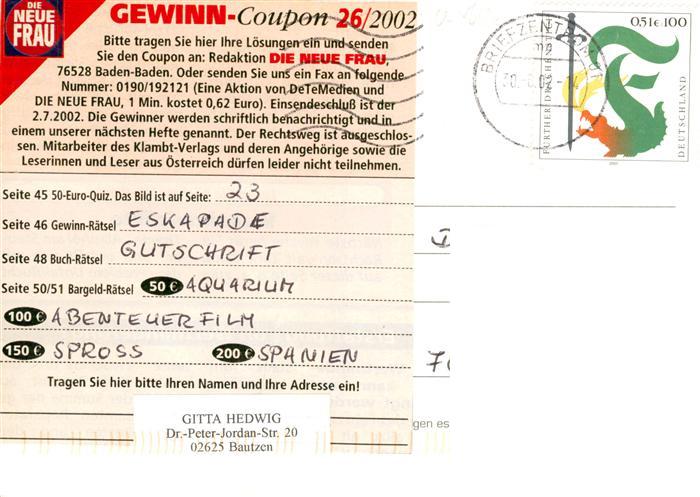 DIE
NEUE
FRAU
GEWINN-Coupon 26/2002
Bitte tragen Sie hier Ihre Lösungen ein und senden
Sie den Coupon an: Redaktion DIE NEUE FRAU,
76528 Baden-Baden. Oder senden Sie uns ein Fax an folgende
Nummer: 0190/192121 (Eine Aktion von DeTeMedien und
DIE NEUE FRAU, 1 Min. kostet 0,62 Euro). Einsendeschluß ist der
2.7.2002. Die Gewinner werden schriftlich benachrichtigt und in
einem unserer nächsten Hefte genannt. Der Rechtsweg ist ausgeschlos-
sen. Mitarbeiter des Klambt-Verlags und deren Angehörige sowie die
Leserinnen und Leser aus Österreich dürfen leider nicht teilnehmen.
Seite 45 50-Euro-Quiz. Das Bild ist auf Seite: 23
Seite 46 Gewinn-Rätsel ESKAPADE
Seite 48 Buch-Rätsel GUTSCHRIFT
Seite 50/51 Bargeld-Rätsel 50 € AQUARIUM
100 € ABENTEUERFILM
150 € SPROSS 200 € SPANIEN
Tragen Sie hier bitte Ihren Namen und Ihre Adresse ein!
GITTA HEDWIG
Dr.-Peter-Jordan-Str. 20
02625 Bautzen
BRIEFZENTRUM
0,51€+100
FURTHER DRACHENSTICH
DEUTSCHLAND
gen es